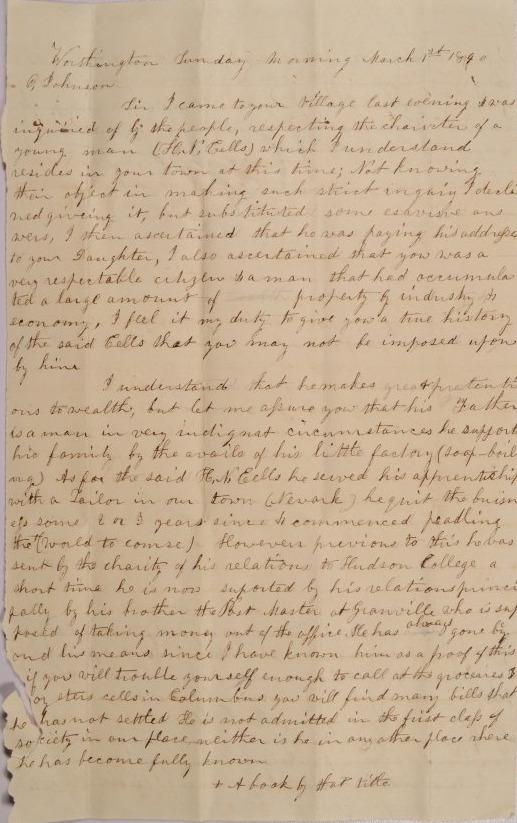 Worthington Sunday Morning March 1st 1840
O Johnson
Sir I came to your village last evening & was
inquired of by the people, respecting the charicter of a
young man (H. N. Eells) which I understand
resides in your town at this time; Not knowing
their object in making such strict inquiry I decli
ned giveing it, but substituted some esavisive ans
wers, I then ascertained that he was paying his addresses
to your Daughter, I also ascertained that you was a
very respectable citizen & a man that had accumula
ted a large amount of property by industry &
economy, I feel it my duty to give you a true history
of the said Eells that you may not be imposed upon
by him
I understand that he makes great pretenti
ons to wealth, but let me assure you that his Father
is a man in very indignat circumstances he support
his family by the avails of his little factory (soap-boili
ng) As for the said H. N. Eells he served his apprentiship
with a Tailor in our town (Newark) he quit the buisn
ess some 2 or 3 years since & commenced peadling
the (World to comse) However previous to this he was
sent by the charity of his relations to Hudson College a
short time he is now suported by his relations princi
pally by his brother the Post Master at Granville who is sup
posed of taking money out of the office. He has always gone be
ond his means since I have known him as a proof of this
if you will trouble yourself enough to call at the groceries &
cells in Columbus you will find many bills that
he has not settled He is not admitted in the first class of
society in our place neither is he in any other place where
he has become fully known
+ A book by